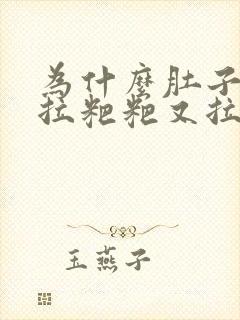 为什麽肚子
拉粑粑又拉
玉燕子